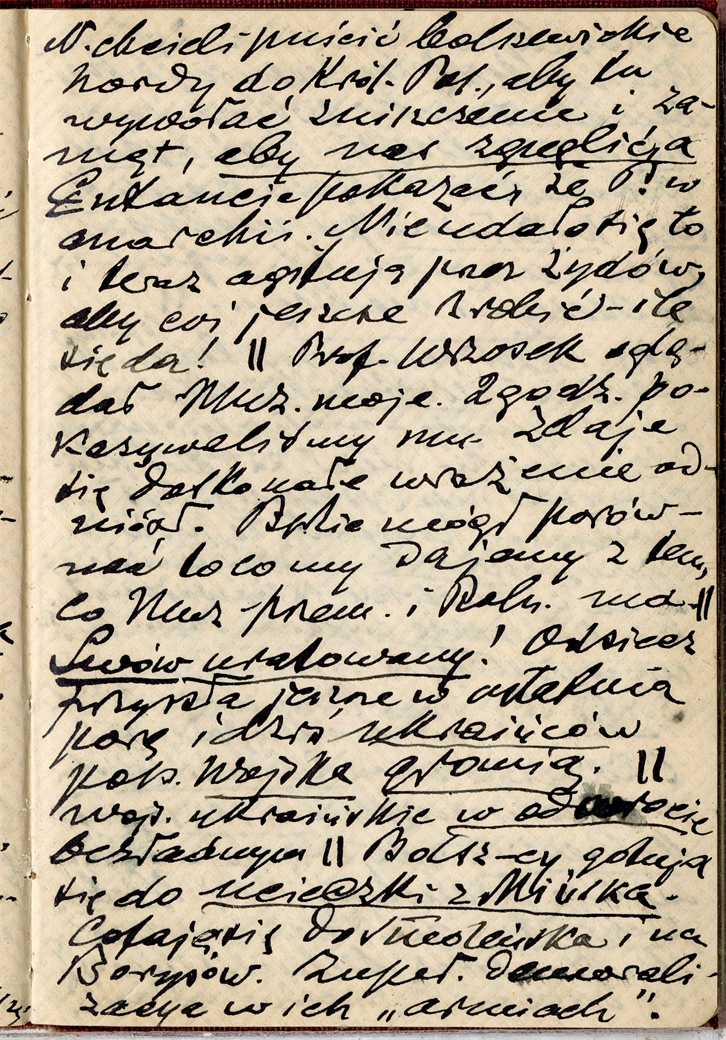 N. chcieli puścić bolszewickie
hordy do Król. Pol., aby tu
wywołać zniszczenie i za-
męt, aby nas zgnębić, a
Entancie pokazać, że P. w
anarchii. Nie udało się to
i teraz agitują przez żydów,
aby coś jeszcze zrobić – ile
się da! || Prof. Wrzosek oglą-
dał Muz. moje. 2 godz. po-
kazywaliśmy mu. Zdaje
się doskonałe wrażenie od-
niósł. Będzie mógł porów-
nać to co my dajemy z tem,
co Muz. przem. i Roln. ma. ||
Lwów uratowany! Odsiecz
przyszła jeszcze w ostatnią
porę i dziś ukraińców
pols. wojska gromią. ||
Wojs. ukraińskie w odwrocie
bezładnym || Bolsz-cy gotują
się do ucieczki z Mińska.
Cofają się do Smoleńska i na
Borysów. Zupeł. demorali-
zacya w ich „armiach".